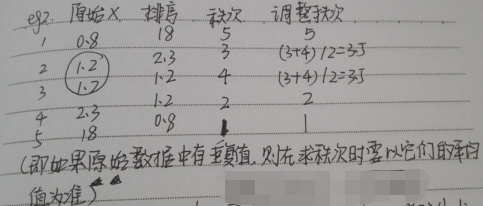 eg2. 原始X 排序 秩次 调整秩次
1 0.8 18 5 5
2 1.2 2.3 3 (3+4)/2=3.5
3 1.2 1.2 4 (3+4)/2=3.5
4 2.3 1.2 2 2
5 18 0.8 1 1
(即如果原始数据中有重复值,则在求秩次时要以它们的平均
值为准)